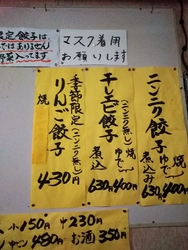 定餃子は
ではありません
野菜入ってます
マスク着用
お願いします
ニンニク餃子
焼 ゆで 煮込み
630 400円
チーレモ餃子
(ニンニク無し)
焼 ゆで 煮込
630 400円
季節限定
(ニンニク無し)
りんご餃子
焼
430円
小150円 中230円
490円 お酒350円